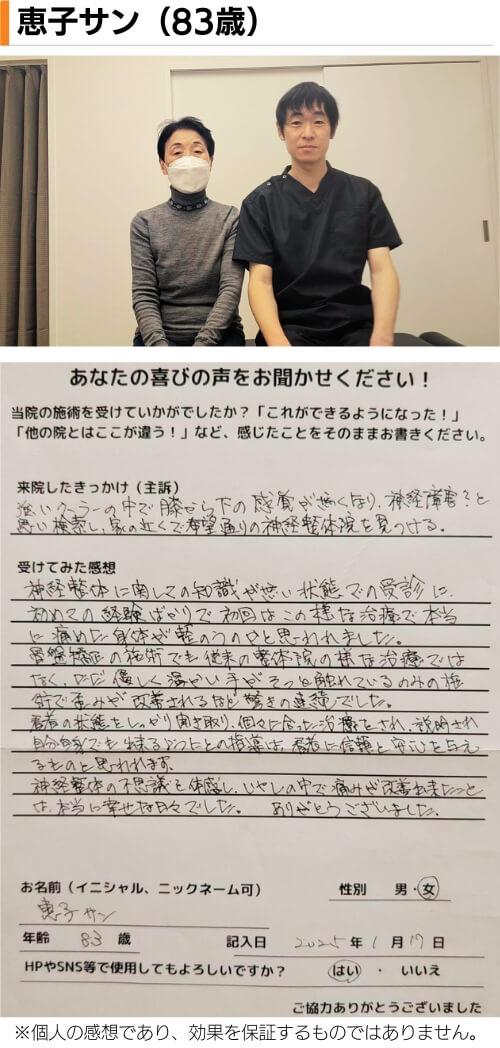 恵子サン（83歳）
あなたの喜びの声をお聞かせください！
当院の施術を受けていかがでしたか？「これができるようになった！」
「他の院とはここが違う！」など、感じたことをそのままお書きください。
来院したきっかけ（主訴）
強いクーラーの中で膝から下の感覚が無くなり、神経障害？と
思い検索し、家の近くで希望通りの神経整体院を見つける。
受けてみた感想
神経整体に関しての知識が無い状態での受診に、
初めての経験ばかりで初回はこの様な治療で本当
に痛めた身体が軽のうのかと思われました。
骨盤矯正の施術でも従来の整体院の様な治療では
なく、ただ優しく温かい手がそっと触れているのみの施
術で歪みが改善されるなど驚きの連続でした。
患者の状態をしっかり聞き取り、個々に合った治療をされ、説明され
自分自身でも出来る との指導は、患者に信頼と安心を与え
るものと思われます。
神経整体の不思議を体感し、いやしの中で痛みが改善出来たこと
は、本当に幸せな日々でした。 ありがとうございました。
お名前（イニシャル、ニックネーム可） 性別 男・女
恵子サン
年齢 83 歳 記入日 2025年1月17日
HPやSNS等で使用してもよろしいですか？ はい ・ いいえ
ご協力ありがとうございました
※個人の感想であり、効果を保証するものではありません。